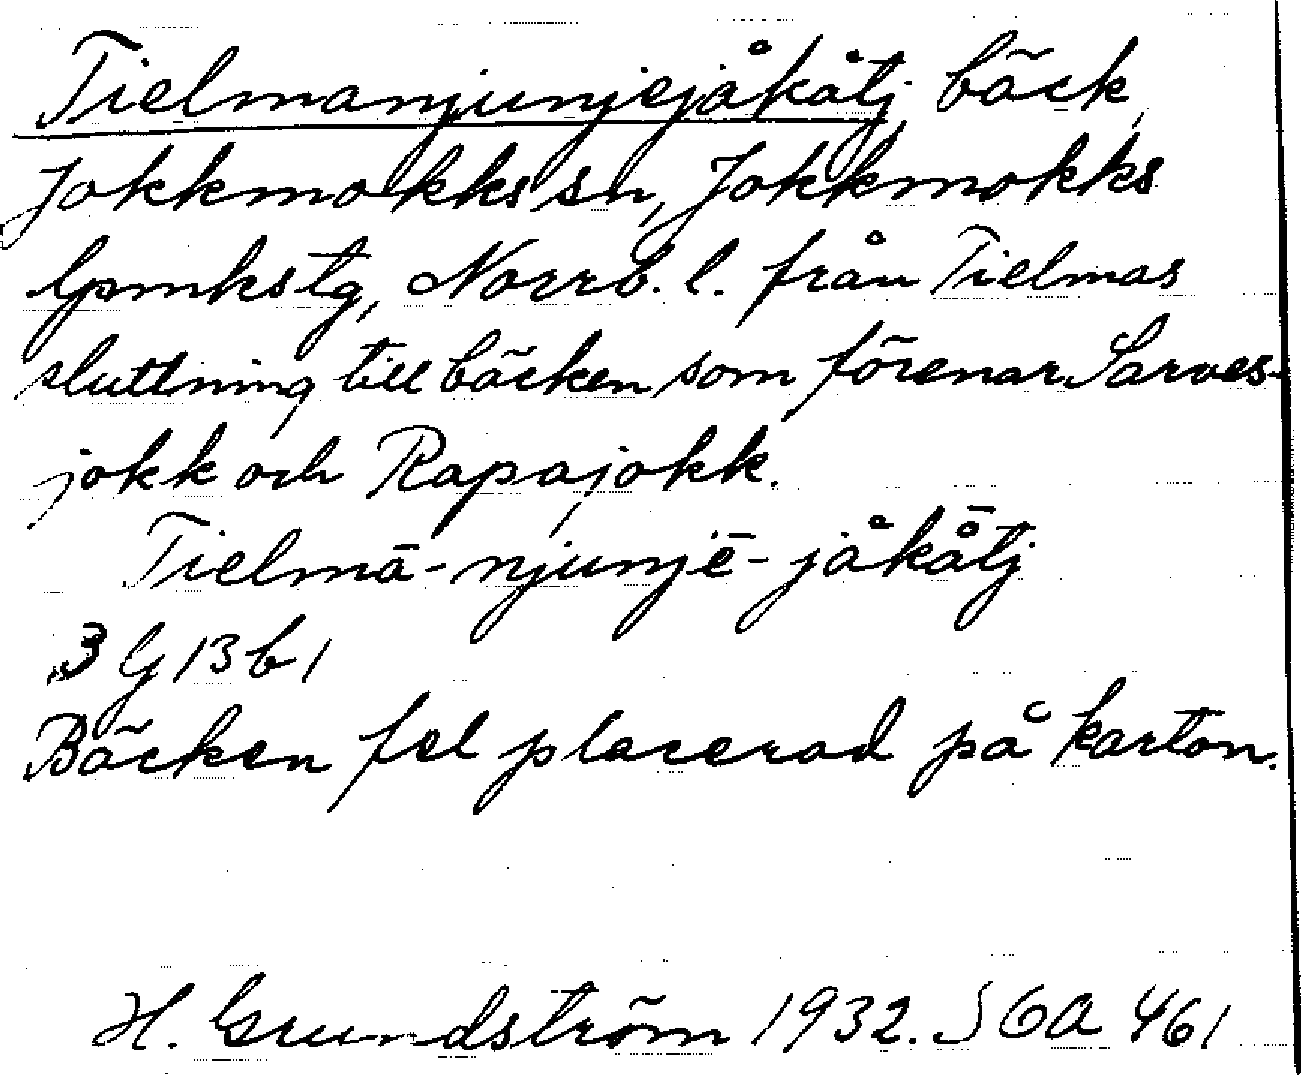 Tielmanjunjejåkåtj bäck,
Jokkmokks sn, Jokkmokks
lpmkstg, Norrb. l. från Tielmas
sluttning till bäcken som förenar Sarves-
jokk och Rapajokk.
Tielmā-njunjē-jåkå̄tj
3 G 13 b 1
Bäcken fel placerad på karton.
H. Grundström 1932. SOA 461